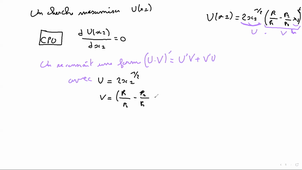 On cherche maximiser U(x2)
U(x2) = 2x2^1/2 (R/P1 - P2/P1 x2)
U V
CPO dU(x2)/dx2 = 0
On reconnaît une forme (U·V)' = U'V + V'U
avec U = 2x2^1/2
V = (R/P1 - P2/P1